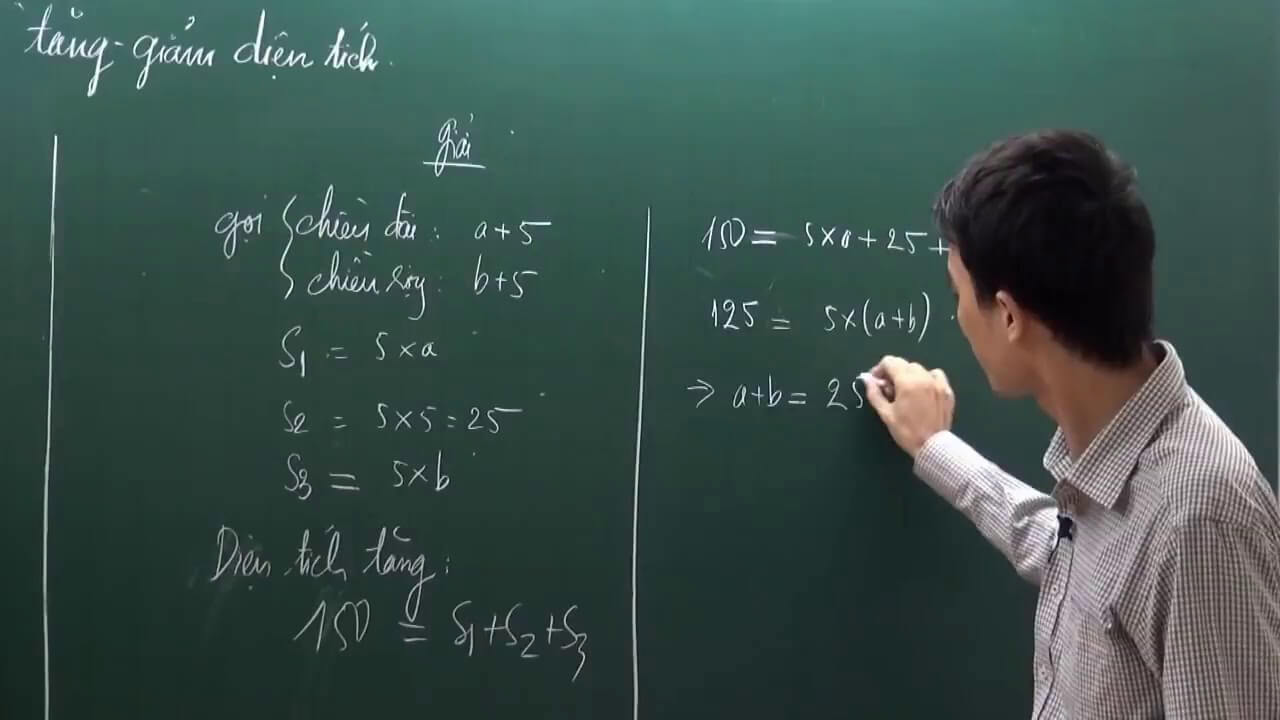 tăng-giảm diện tích.
giải
gọi { chiều dài : a+5
{ chiều rộng : b+5
S1 = 5×a
S2 = 5×5=25
S3 = 5×b
Diện tích tăng:
150 = S1+S2+S3
150 = 5×a+25+
125 = 5×(a+b)
→ a+b = 25